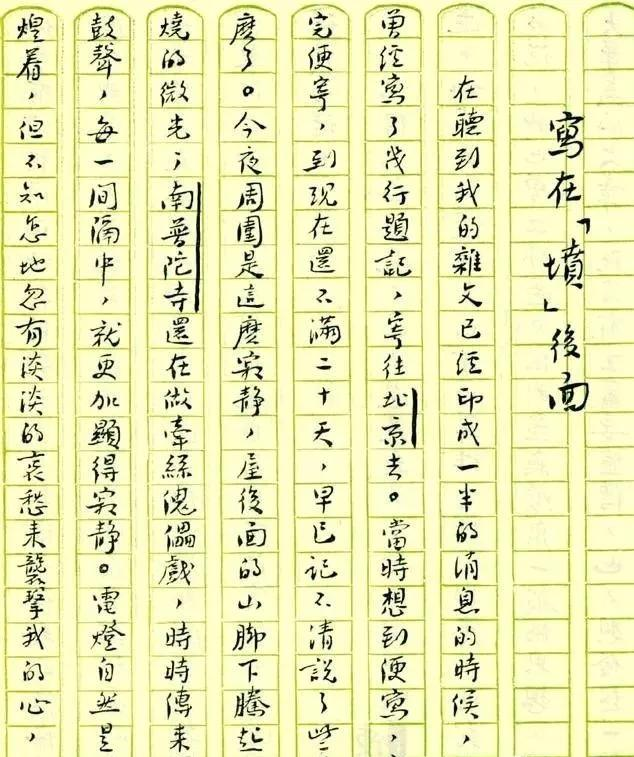 寫在「墳」後面
在聽到我的雜文已經印成一半的消息的時候,
曾經寫了幾行題記,寄往北京去。當時想到便寫,
完便寄,到現在還不滿二十天,早已記不清說了些
麼了。今夜周圍是這麼寂靜,屋後面的山脚下騰起
燒的微光;南普陀寺還在做牽絲傀儡戲,時時傳來
鼓聲,每一間隔中,就更加顯得寂靜。電燈自然是
煌着,但不知怎地忽有淡淡的哀愁來襲擊我的心,